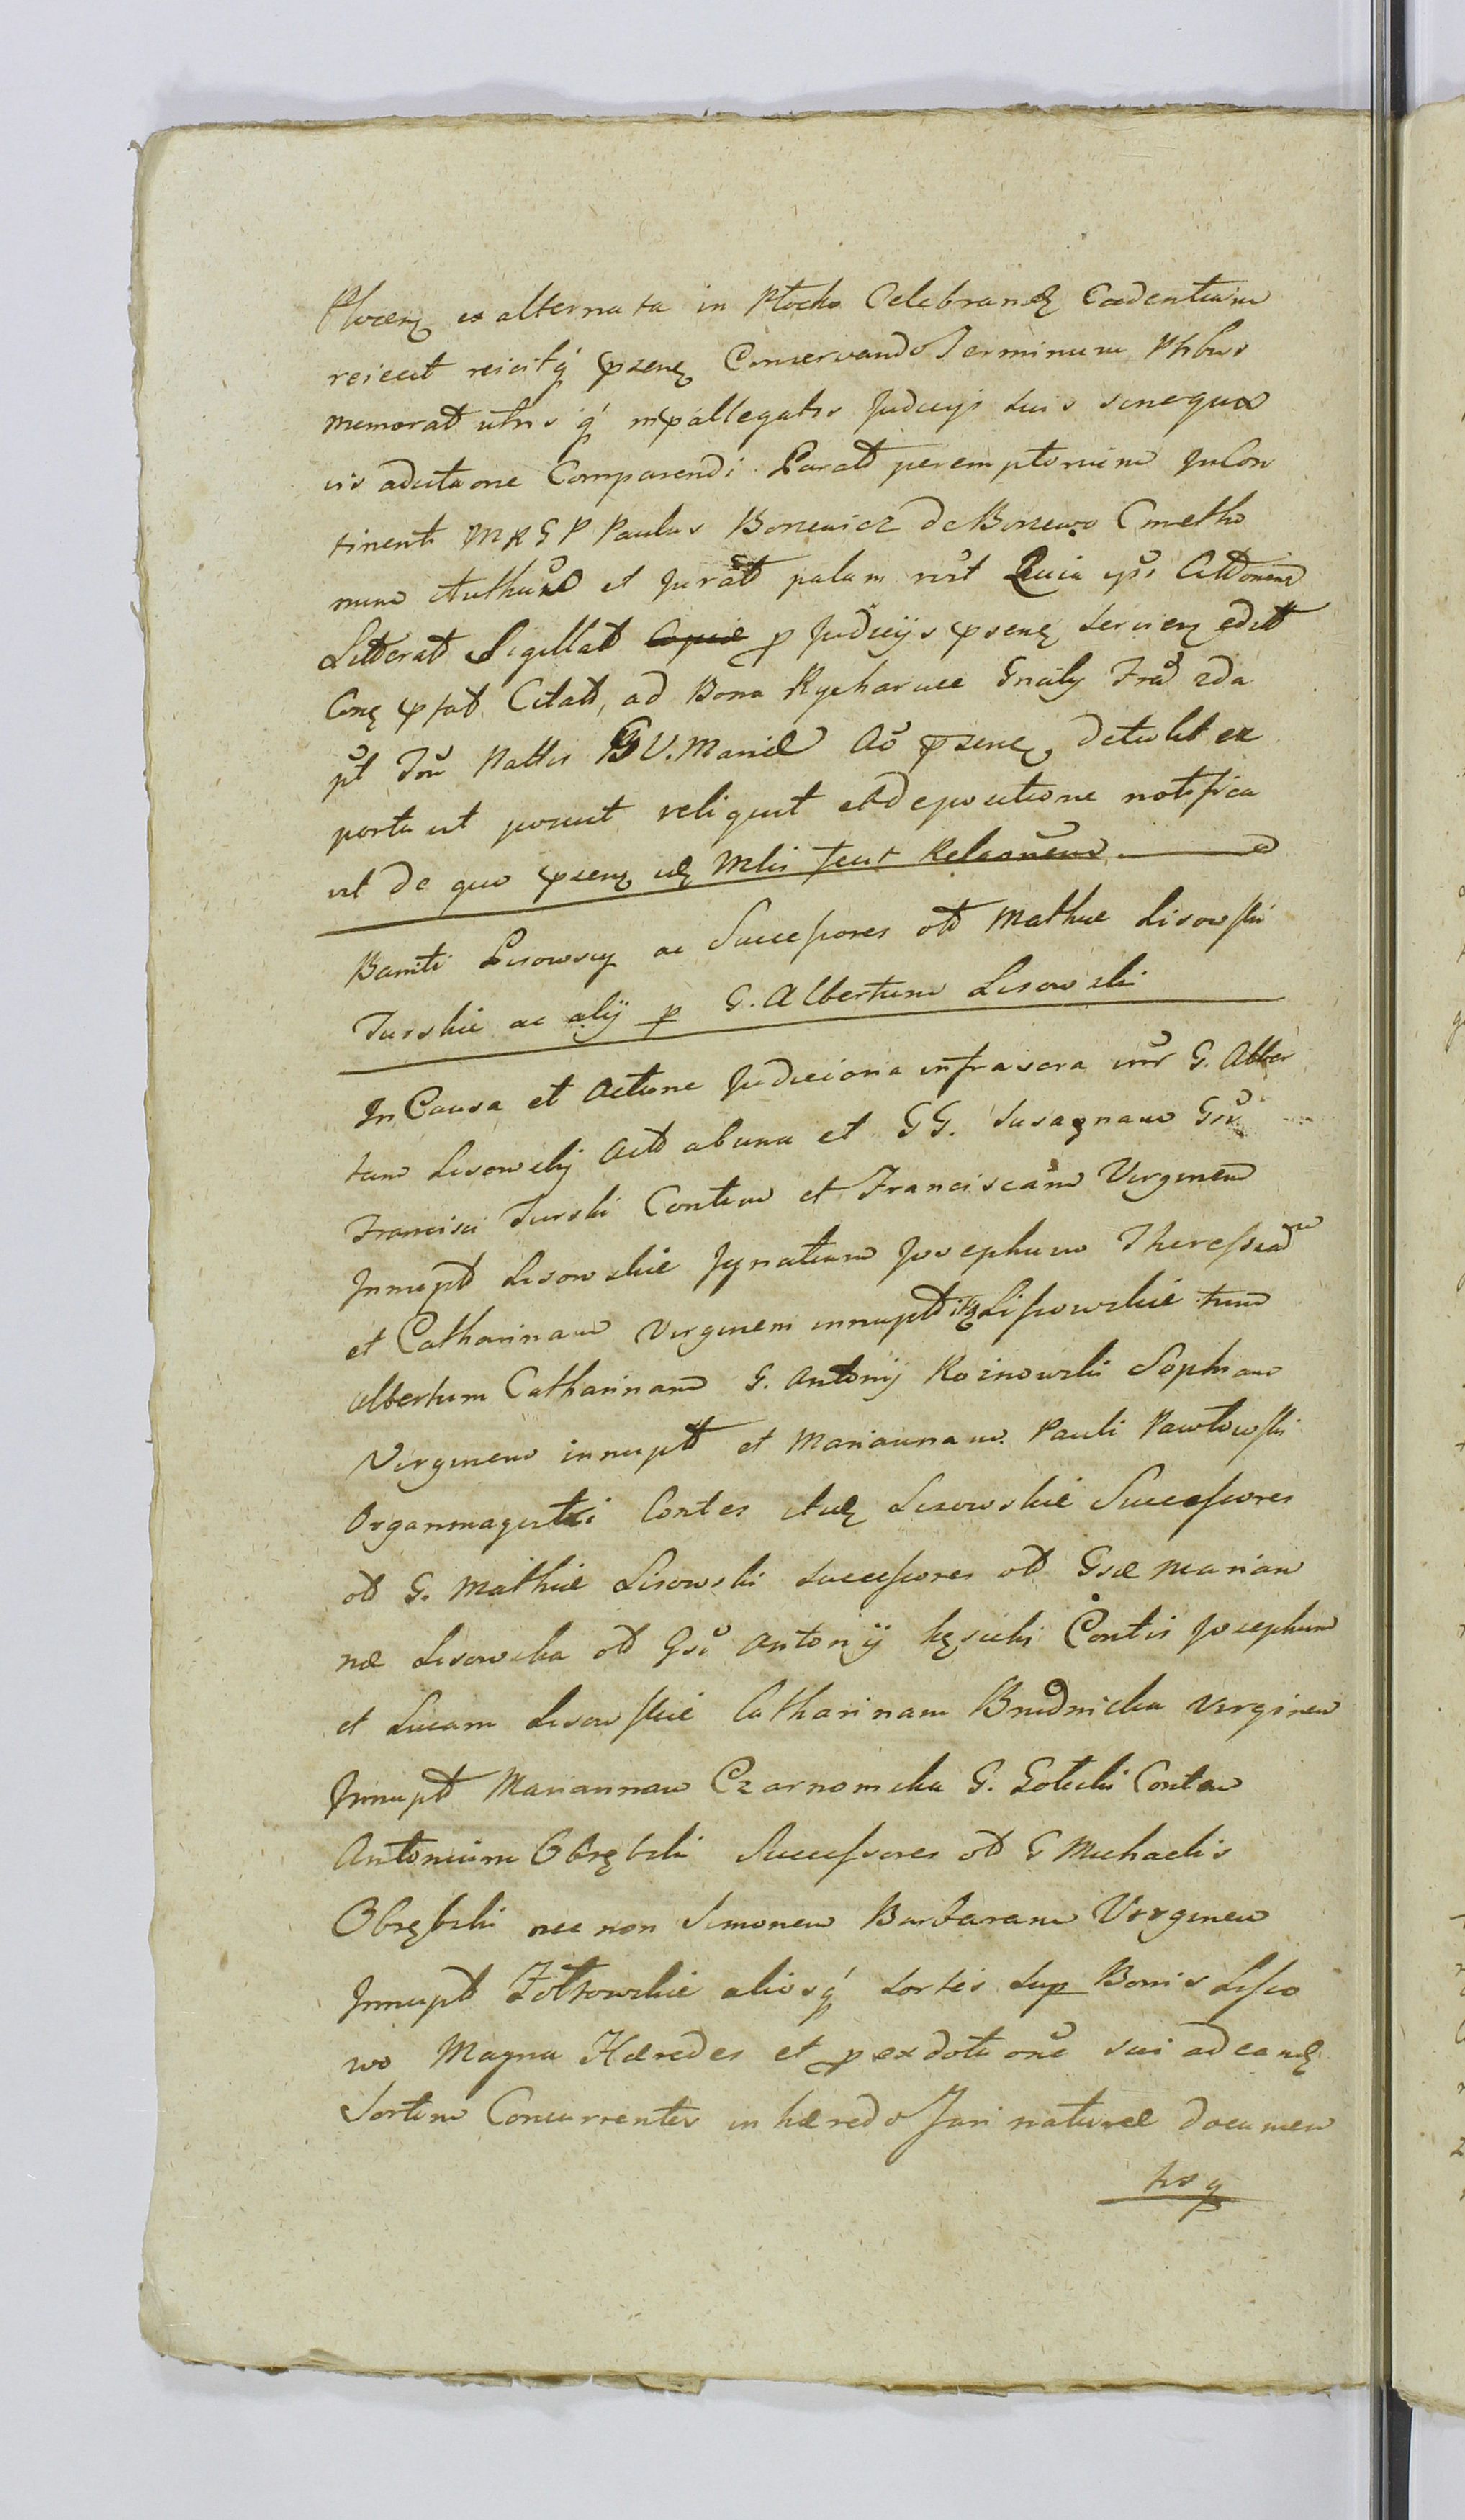 Plocen ex alternata in Płocko Celebrand Cadentiam
reiecit reicitq́ pzen Conservando Terminum Ptibus
memorat utrisq́ mpallegatis Judicijs suis sine quo
vis adcitaone Comparendi Parat peremptorium Incon
tinenti MRGP Paulus Boniewicz de Boniewo Cmetho
mino Authen et Jurat palam rŭt Quia ipse Citaonem
Litterat Sigillat p Judicijs pzen servien edit
Con pfat Citat, ad Bona Rycharcice Gnaly Fra 2da
pt Fŭ Nattis BV. Mariæ Aŏ pzen detulit ex
portavit posuit reliquit et depositione notifica
vit de quo pzen id Mlis fecit Relaonem
Baniti Lisowscy ac Successores ot Mathiæ Lisowski
Turskie ac alij p G. Albertum Lisowski
In Causa et Actione Judiciaria infrascra intr G. Alber
tum Lisowskj Act ab una et GG. Susagnam Gsi
Francisci Turski Contem et Franciscam Virginem
Innupt Lisowskie Ignatium Josephum Theressiam
et Catharinam Virginem innupt itq Lissowskie tum
Albertum Catharinam G. Antonij Rozinowski Sophiam
Virginem innupt et Mariannam Pauli Pawłowski
Organmagistri Contes itid Lisowskie Successores
ot G. Mathiæ Lisowski successores ot Gsæ Marian
næ Lisowska ot Gsi Antonij Kęsicki Contis Josephum
et Lucam Lisowskie Catharinam Brudnicka Virginem
Innupt Mariannam Czarnomska G. Gołecki Contem
Antonium Obrębski Successores ot G Michaelis
Obrębski nec non Simonem Barbaram Virginem
Innupt Zołtowskie aliosq́ sortis sup Bonis Lisso
wo Magna Hæredes et p exdotaone sui ad eand
Sortem Concurrentes in hæredo Juri naturæ documen
tisq